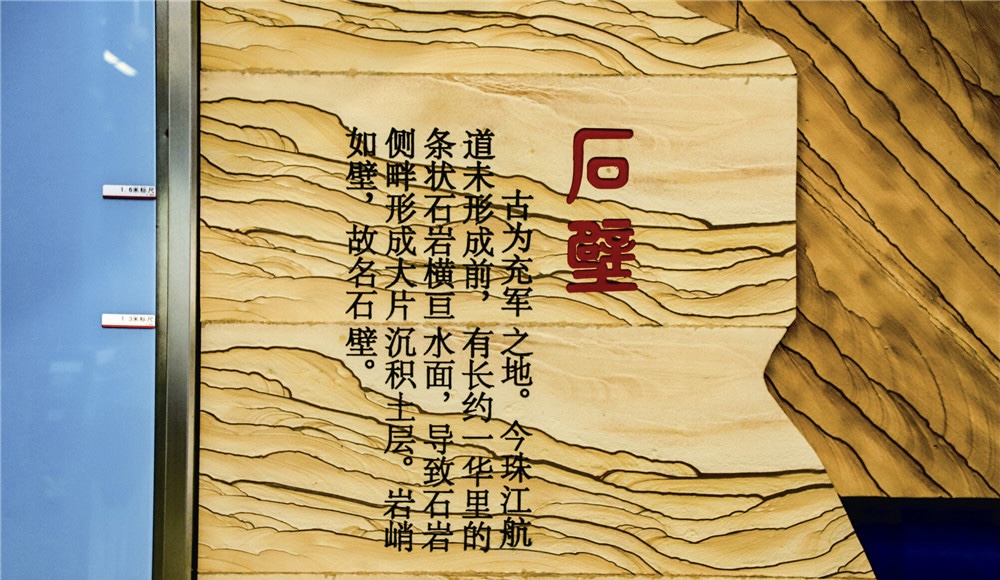 石壁
古为充军之地。今珠江航
道未形成前，有长约一华里的
条状石岩横亘水面，导致石岩
侧畔形成大片沉积土层。岩峭
如壁，故名石壁。
1.6米标尺
1.3米标尺